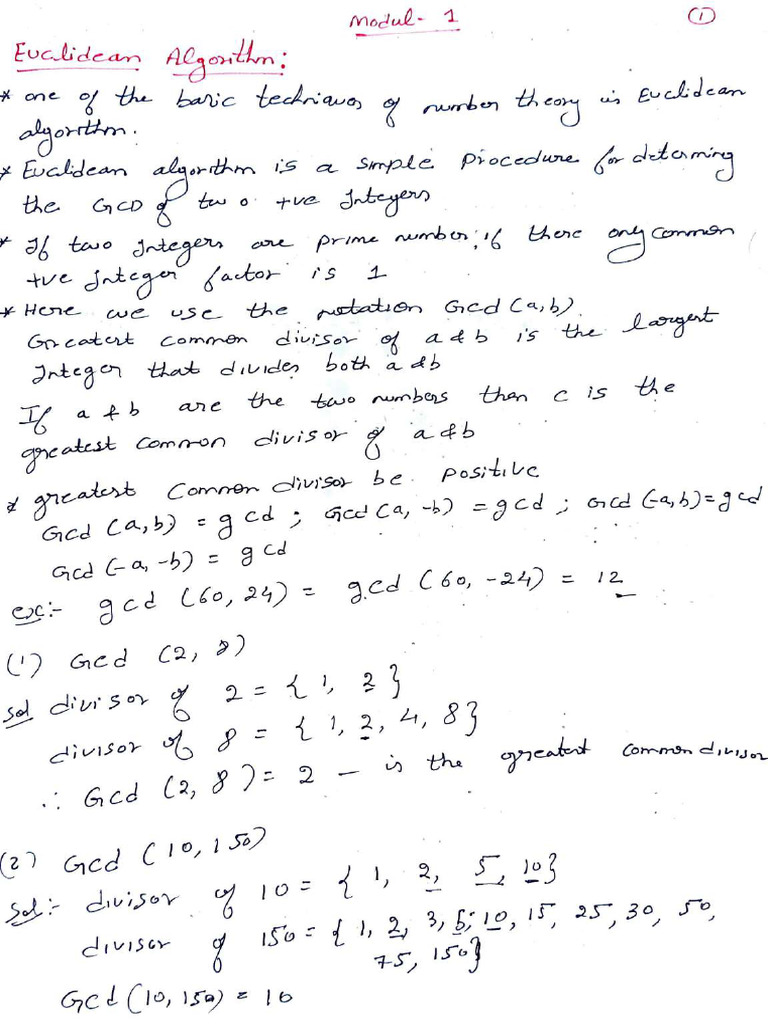 Modul- 1
(1)
Euclidean Algorithm:
* one of the basic techniques of number theory is Euclidean
algorithm.
* Euclidean algorithm is a simple procedure for determing
the GCD of two +ve Integers
* If two Integers are prime number; if there only common
+ve Integer factor is 1
* Here we use the notation Gcd (a,b).
Greatest common divisor of a & b is the largest
Integer that divides both a & b
If a & b are the two numbers then c is the
greatest common divisor of a & b
* greatest common divisor be positive
Gcd (a,b) = gcd ; Gcd (a, -b) = gcd ; Gcd (-a,b) = gcd
Gcd (-a, -b) = gcd
ex:- gcd (60, 24) = gcd (60, -24) = 12
(1) Gcd (2, 8)
Sol divisor of 2 = { 1, 2 }
divisor of 8 = { 1, 2, 4, 8 }
∴ Gcd (2, 8) = 2 — is the greatest common divisor
(2) Gcd (10, 150)
Sol:- divisor of 10 = { 1, 2, 5, 10 }
divisor of 150 = { 1, 2, 3, 5, 10, 15, 25, 30, 50,
75, 150 }
Gcd (10, 150) = 10